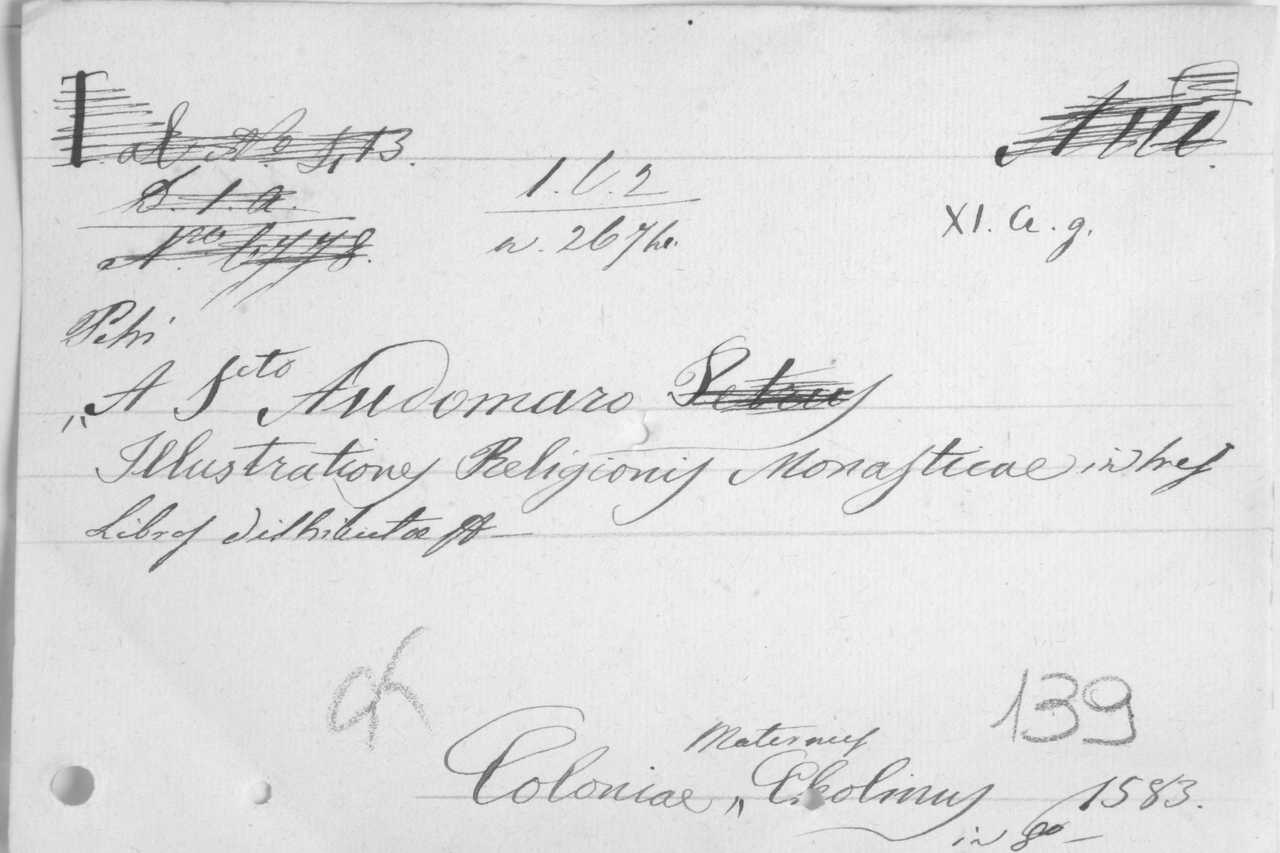 ad No I, 13.
D. 1. a.
Nro 6778.
1. b. 2
n. 267
XI. a. g.
Petri
„A Scto Audomaro Petrus
Illustrationes Religionis Monasticae in tres
Libros distributae
139
Maternus
Coloniae, „Cholinus 1583.
in 8o